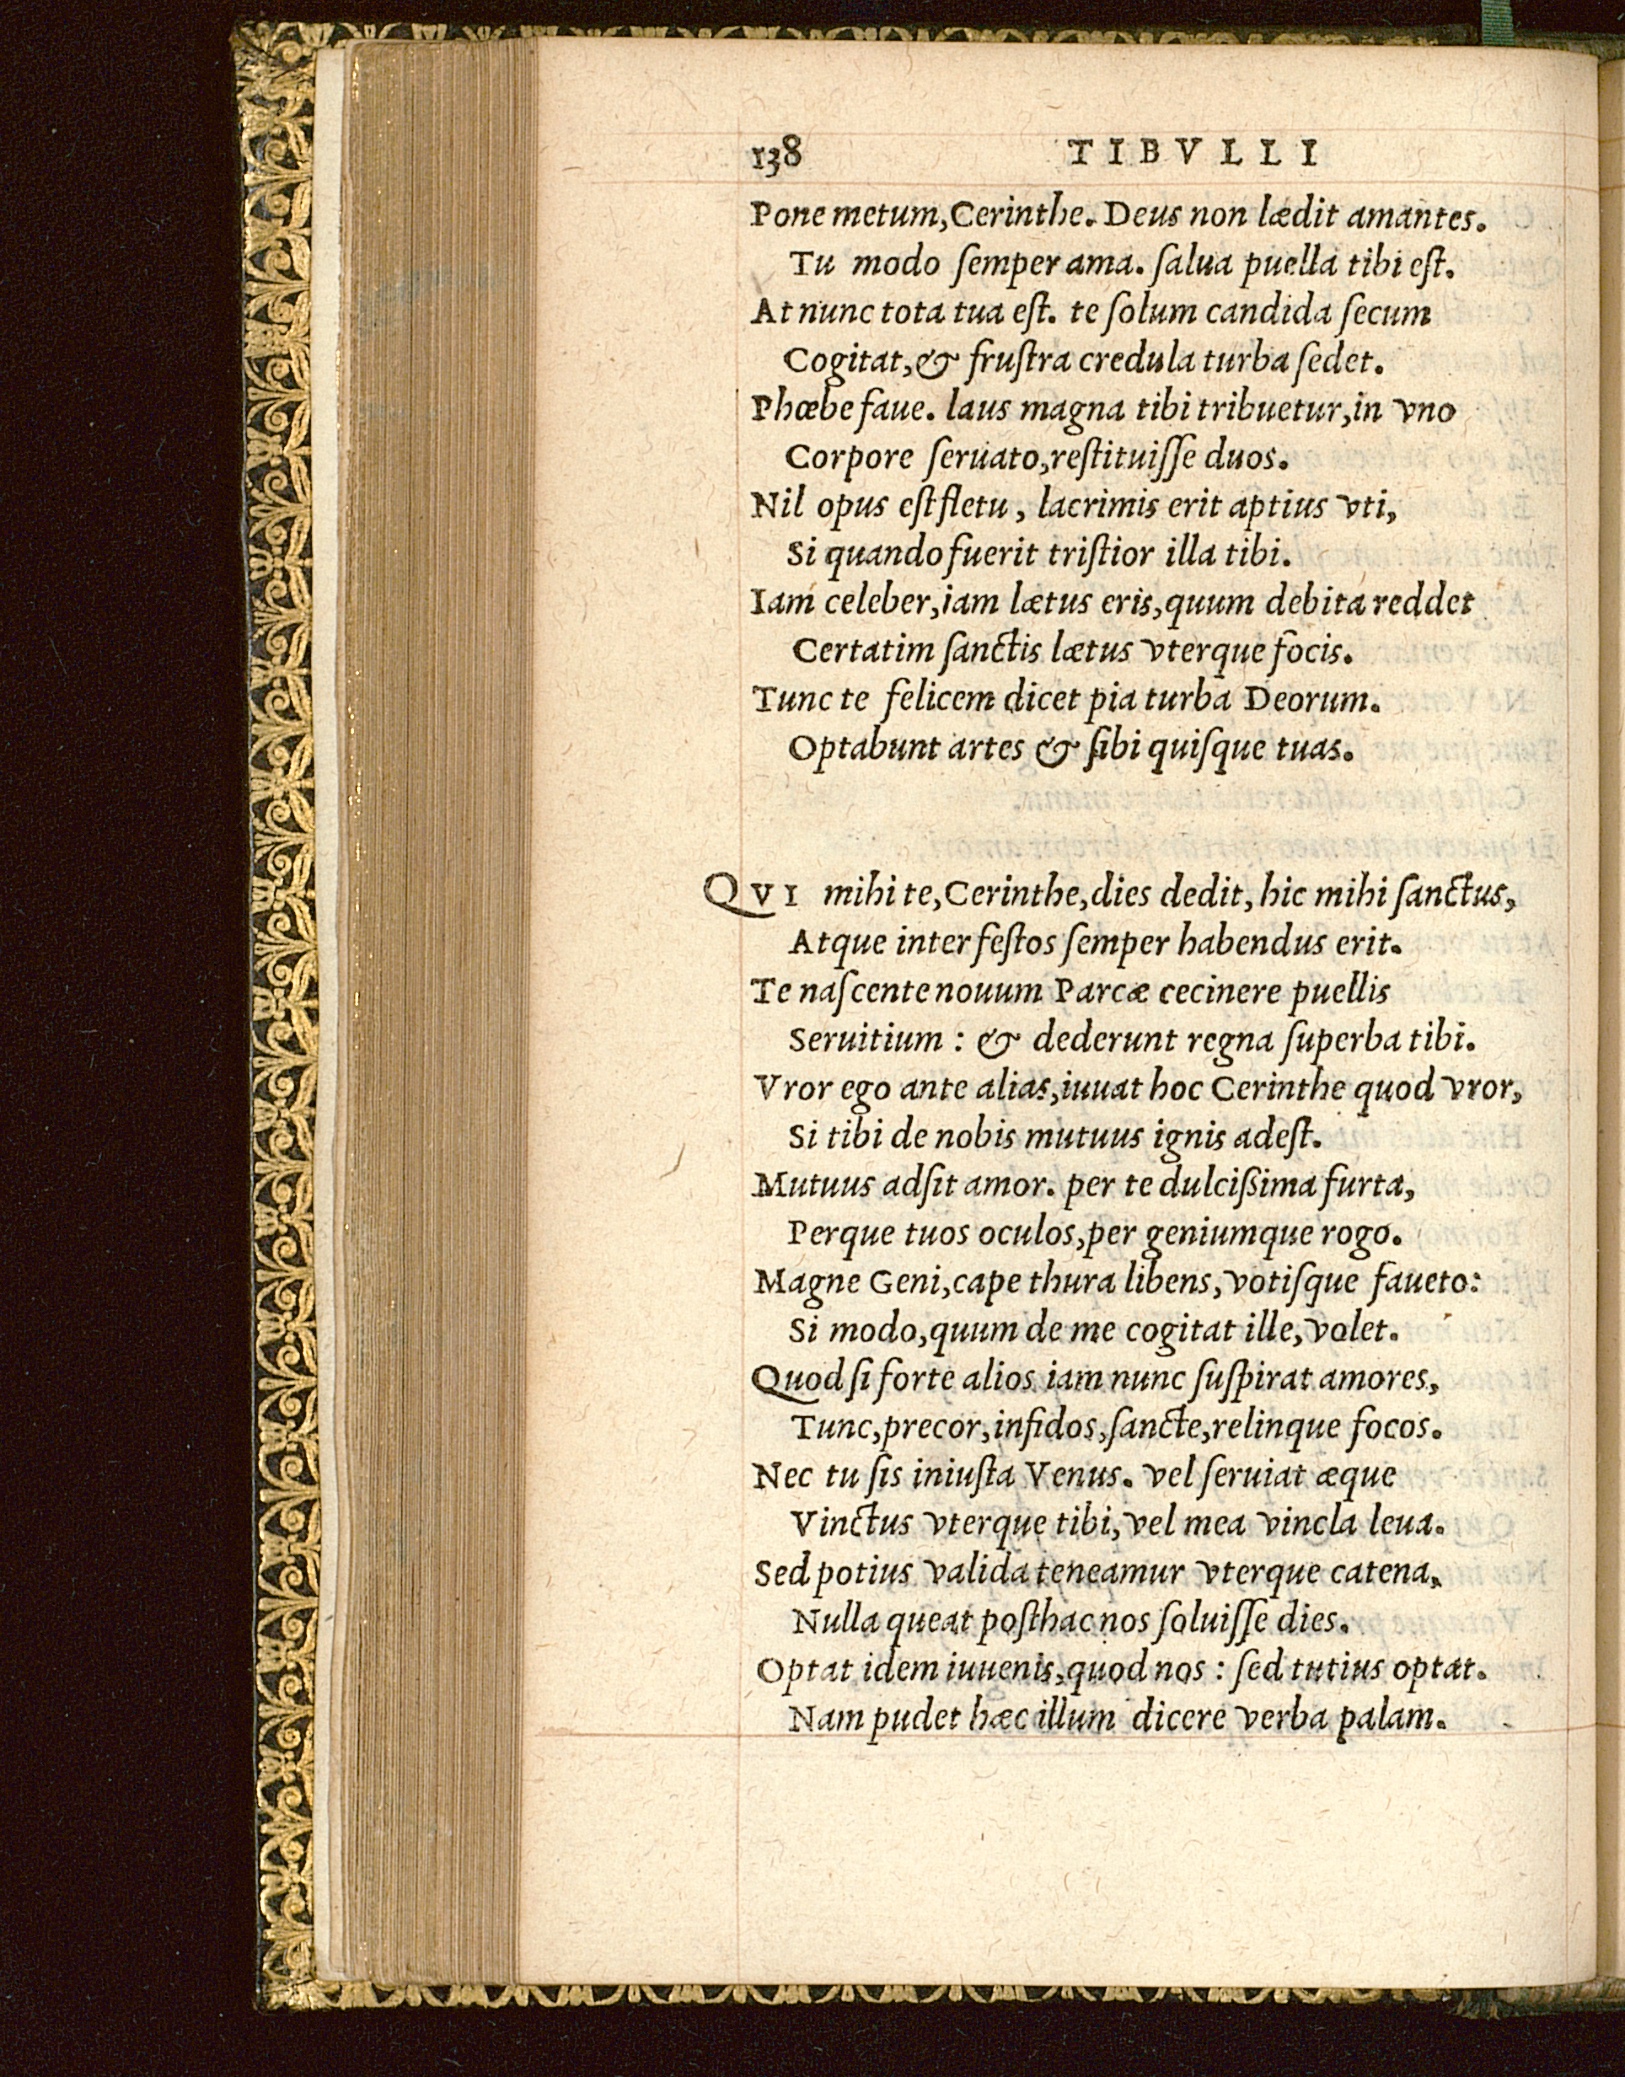 138 TIBVLLI
Pone metum, Cerinthe. Deus non lædit amantes.
Tu modo ſemper ama. ſalua puella tibi eſt.
At nunc tota tua eſt. te ſolum candida ſecum
Cogitat, & fruſtra credula turba ſedet.
Phœbe faue. laus magna tibi tribuetur, in vno
Corpore ſeruato, reſtituiſſe duos.
Nil opus eſt fletu, lacrimis erit aptius vti,
Si quando fuerit triſtior illa tibi.
Iam celeber, iam lætus eris, quum debita reddet
Certatim ſanctis lætus vterque focis.
Tunc te felicem dicet pia turba Deorum.
Optabunt artes & ſibi quiſque tuas.
QVI mihi te, Cerinthe, dies dedit, hic mihi ſanctus,
Atque inter feſtos ſemper habendus erit.
Te naſcente nouum Parcæ cecinere puellis
Seruitium : & dederunt regna ſuperba tibi.
Vror ego ante alias, iuuat hoc Cerinthe quod vror,
Si tibi de nobis mutuus ignis adeſt.
Mutuus adſit amor. per te dulciſſima furta,
Perque tuos oculos, per geniumque rogo.
Magne Geni, cape thura libens, votiſque faueto:
Si modo, quum de me cogitat ille, valet.
Quod ſi forte alios iam nunc ſuſpirat amores,
Tunc, precor, infidos, ſancte, relinque focos.
Nec tu ſis iniuſta Venus. vel ſeruiat æque
Vinctus vterque tibi, vel mea vincla leua.
Sed potius valida teneamur vterque catena,
Nulla queat poſthac nos ſoluiſſe dies.
Optat idem iuuenis, quod nos : ſed tutius optat.
Nam pudet hæc illum dicere verba palam.